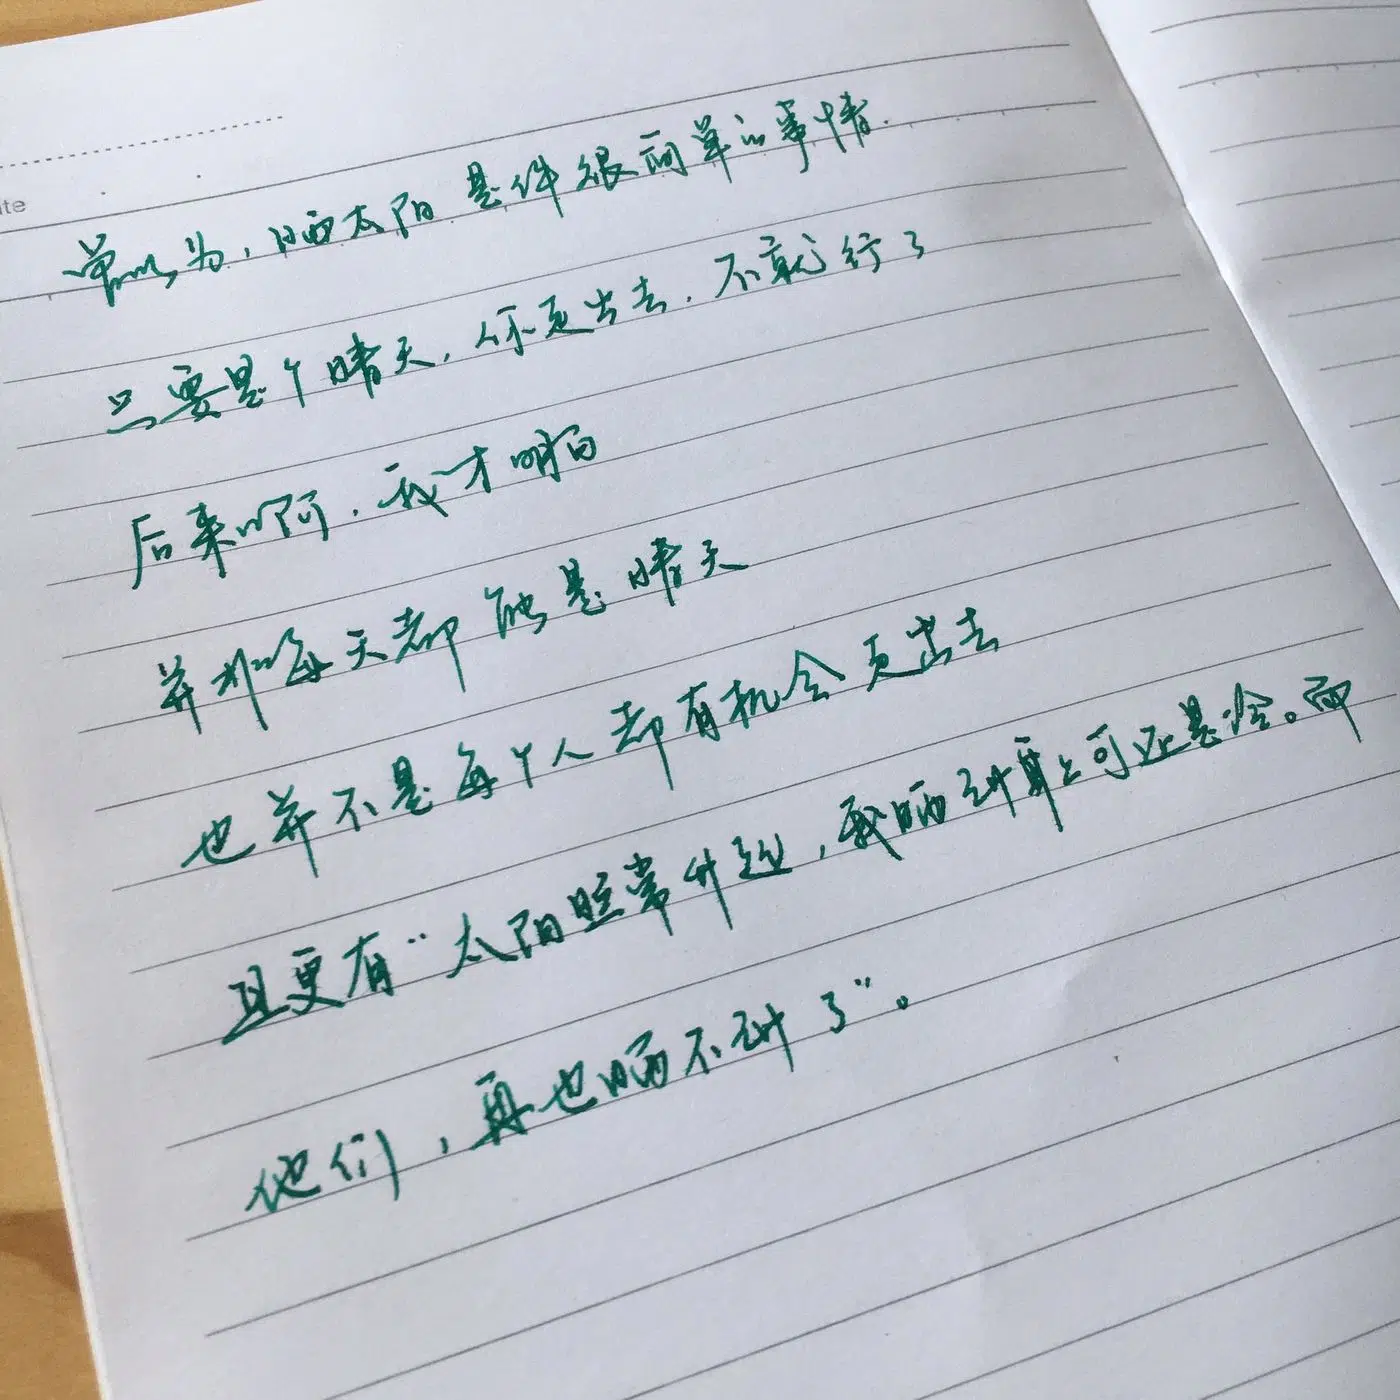 te
曾以为，晒太阳是件很简单的事情.
只要是个晴天，你走出去，不就行了
后来啊，我才明白
并非每天都能是晴天
也并不是每个人都有机会走出去
且更有“太阳照常升起，我晒到身上可还是冷。而
他们，再也晒不到了”。